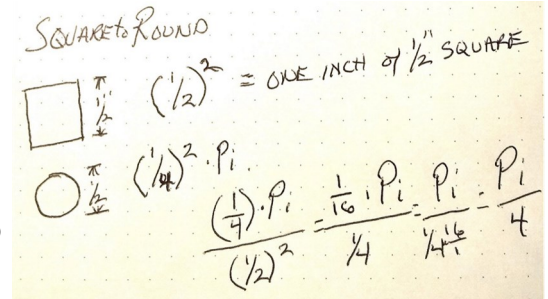 SQUARE to ROUND
(1/2)² = ONE INCH of 1/2" SQUARE
1/2
(1/4)² · Pi
1/2
(1/4)·Pi / (1/2)² = 1/16 · Pi / 1/4 = Pi / 1/4 16/1 = Pi / 4